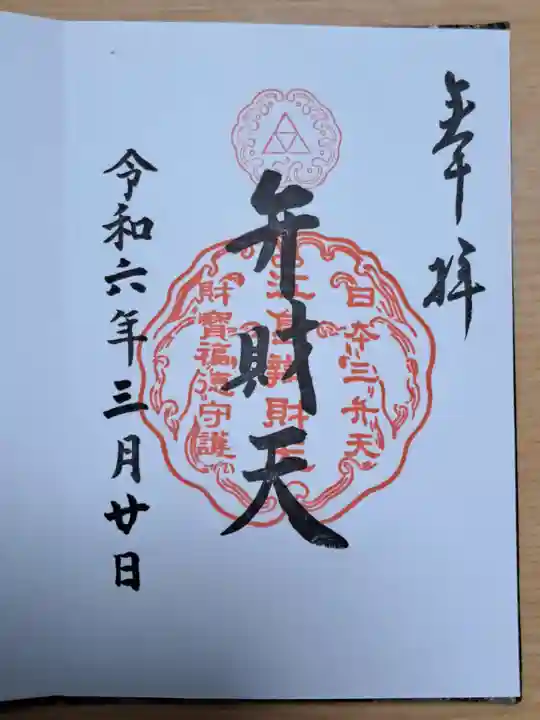 奉拝
日本三弁天
江島辨財天
財寶福徳守護
弁財天
令和六年三月廿日